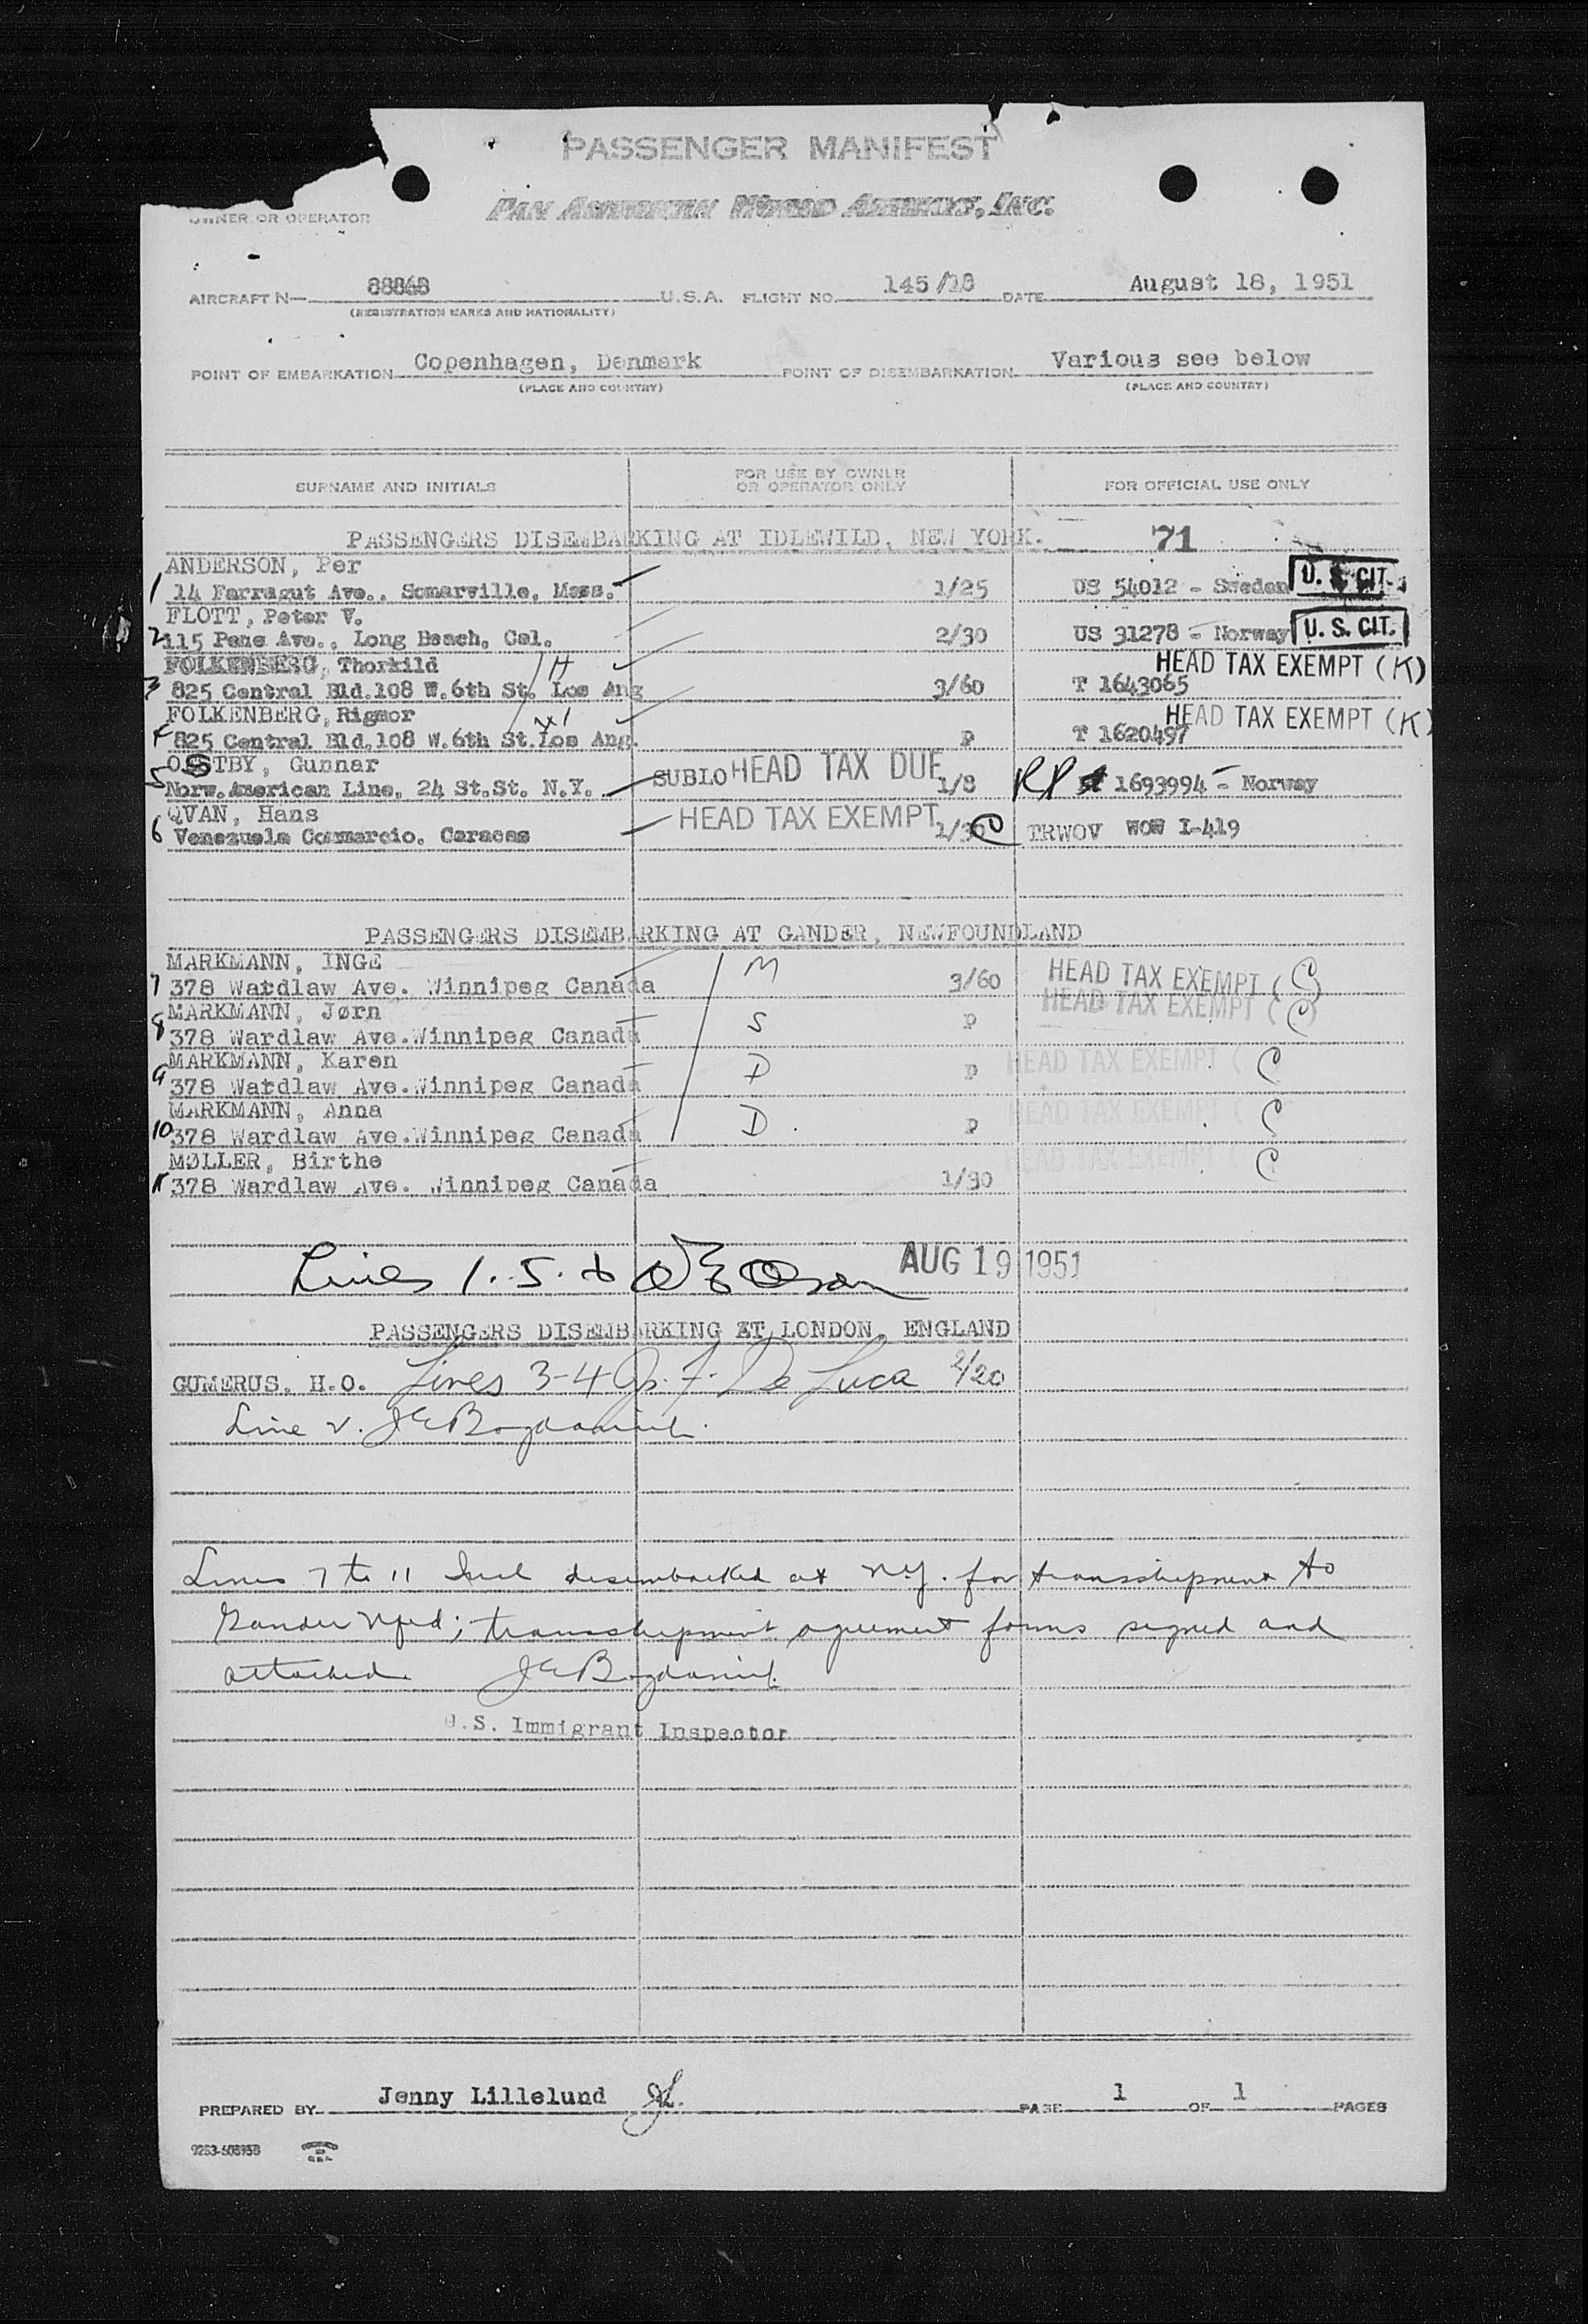 PASSENGER MANIFEST
OWNER OR OPERATOR PAN AMERICAN WORLD AIRWAYS, INC.
AIRCRAFT N— 88868 U.S.A. FLIGHT NO. 145/18 DATE August 18, 1951
(REGISTRATION MARKS AND NATIONALITY)
POINT OF EMBARKATION Copenhagen, Denmark POINT OF DISEMBARKATION Various see below
(PLACE AND COUNTRY) (PLACE AND COUNTRY)
SURNAME AND INITIALS FOR USE BY OWNER OR OPERATOR ONLY FOR OFFICIAL USE ONLY
PASSENGERS DISEMBARKING AT IDLEWILD, NEW YORK. 71
ANDERSON, Per
1 14 Farragut Ave., Somerville, Mass. 1/25 US 54012 - Sweden U. S. CIT.
FLOTT, Peter V.
2 115 Pane Ave., Long Beach, Cal. 2/30 US 31278 - Norway U. S. CIT.
FOLKENBERG, Thorkild H HEAD TAX EXEMPT (K)
3 825 Central Bld.108 W.6th St. Los Ang 3/60 T 1643065
FOLKENBERG, Rigmor HEAD TAX EXEMPT (K)
4 825 Central Bld.108 W.6th St.Los Ang. P T 1620497
OSTBY, Gunnar
5 Norw.American Line, 24 St.St. N.Y. SUBLO HEAD TAX DUE 1/8 RP 1693994 - Norway
QVAN, Hans
6 Venezuela Commarcio. Caracas HEAD TAX EXEMPT 1/30 C TRWOV WOW I-419
PASSENGERS DISEMBARKING AT GANDER, NEWFOUNDLAND
MARKMANN, INGE
7 378 Wardlaw Ave. Winnipeg Canada M 3/60 HEAD TAX EXEMPT ( C )
MARKMANN, Jørn HEAD TAX EXEMPT ( C )
8 378 Wardlaw Ave.Winnipeg Canada S P
MARKMANN, Karen HEAD TAX EXEMPT ( C
9 378 Wardlaw Ave.Winnipeg Canada D P
MARKMANN, Anna HEAD TAX EXEMPT ( C
10 378 Wardlaw Ave.Winnipeg Canada D. P
MØLLER, Birthe HEAD TAX EXEMPT ( C
11 378 Wardlaw Ave. Winnipeg Canada 1/30
Lines 1. 5. 6 AUG 19 1951
PASSENGERS DISEMBARKING AT LONDON, ENGLAND
GUMERUS, H.O. Lines 3-4 De Luca 2/20
Line 2.
Lines 7 to 11 Incl disembarked at N.Y. for transshipment to
Gander Nfld; transshipment agreement forms signed and
attached.
U.S. Immigrant Inspector
PREPARED BY Jenny Lillelund JL. PAGE 1 OF 1 PAGES